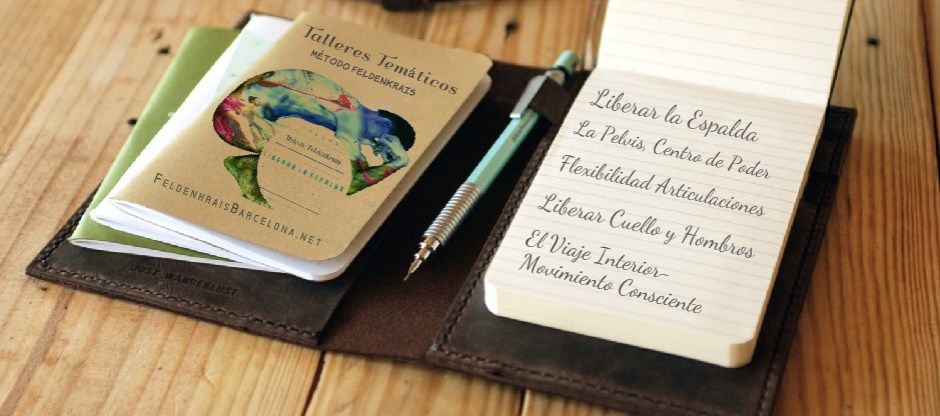 Talleres Temáticos
MÉTODO FELDENKRAIS
LIBERAR LA ESPALDA
FELDENKRAISBARCELONA.NET
JUST WANDERLUST
Liberar la Espalda
La Pelvis, Centro de Poder
Flexibilidad Articulaciones
Liberar Cuello y Hombros
El Viaje Interior–
Movimiento Consciente